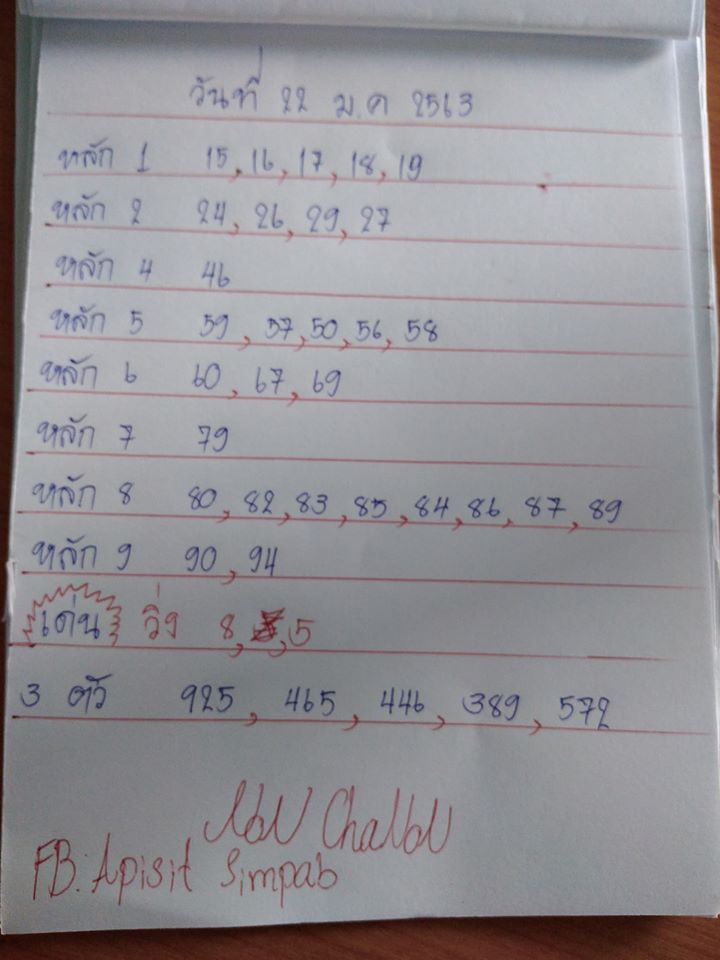 วันที่ 22 ม.ค 2563
หลัก 1 15, 16, 17, 18, 19
หลัก 2 24, 26, 29, 27
หลัก 4 46
หลัก 5 59, 57, 50, 56, 58
หลัก 6 60, 67, 69
หลัก 7 79
หลัก 8 80, 82, 83, 85, 84, 86, 87, 89
หลัก 9 90, 94
เด่น วิ่ง 8, 5
3 ตัว 925, 465, 446, 389, 572
FB: Apisit Simpab